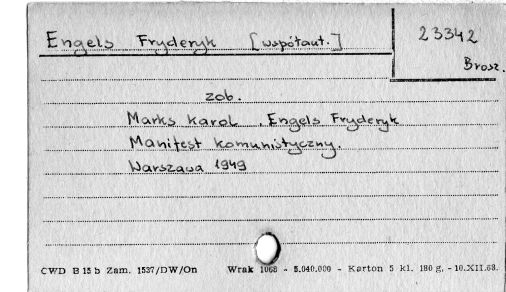 Engels Fryderyk [współaut.]
23342
Brosz.
zob.
Marks Karol, Engels Fryderyk
Manifest komunistyczny.
Warszawa 1949
CWD B 15 b Zam. 1537/DW/On Wrak 1068 - 5.040.000 - Karton 5 kl. 180 g. - 10.XII.68.